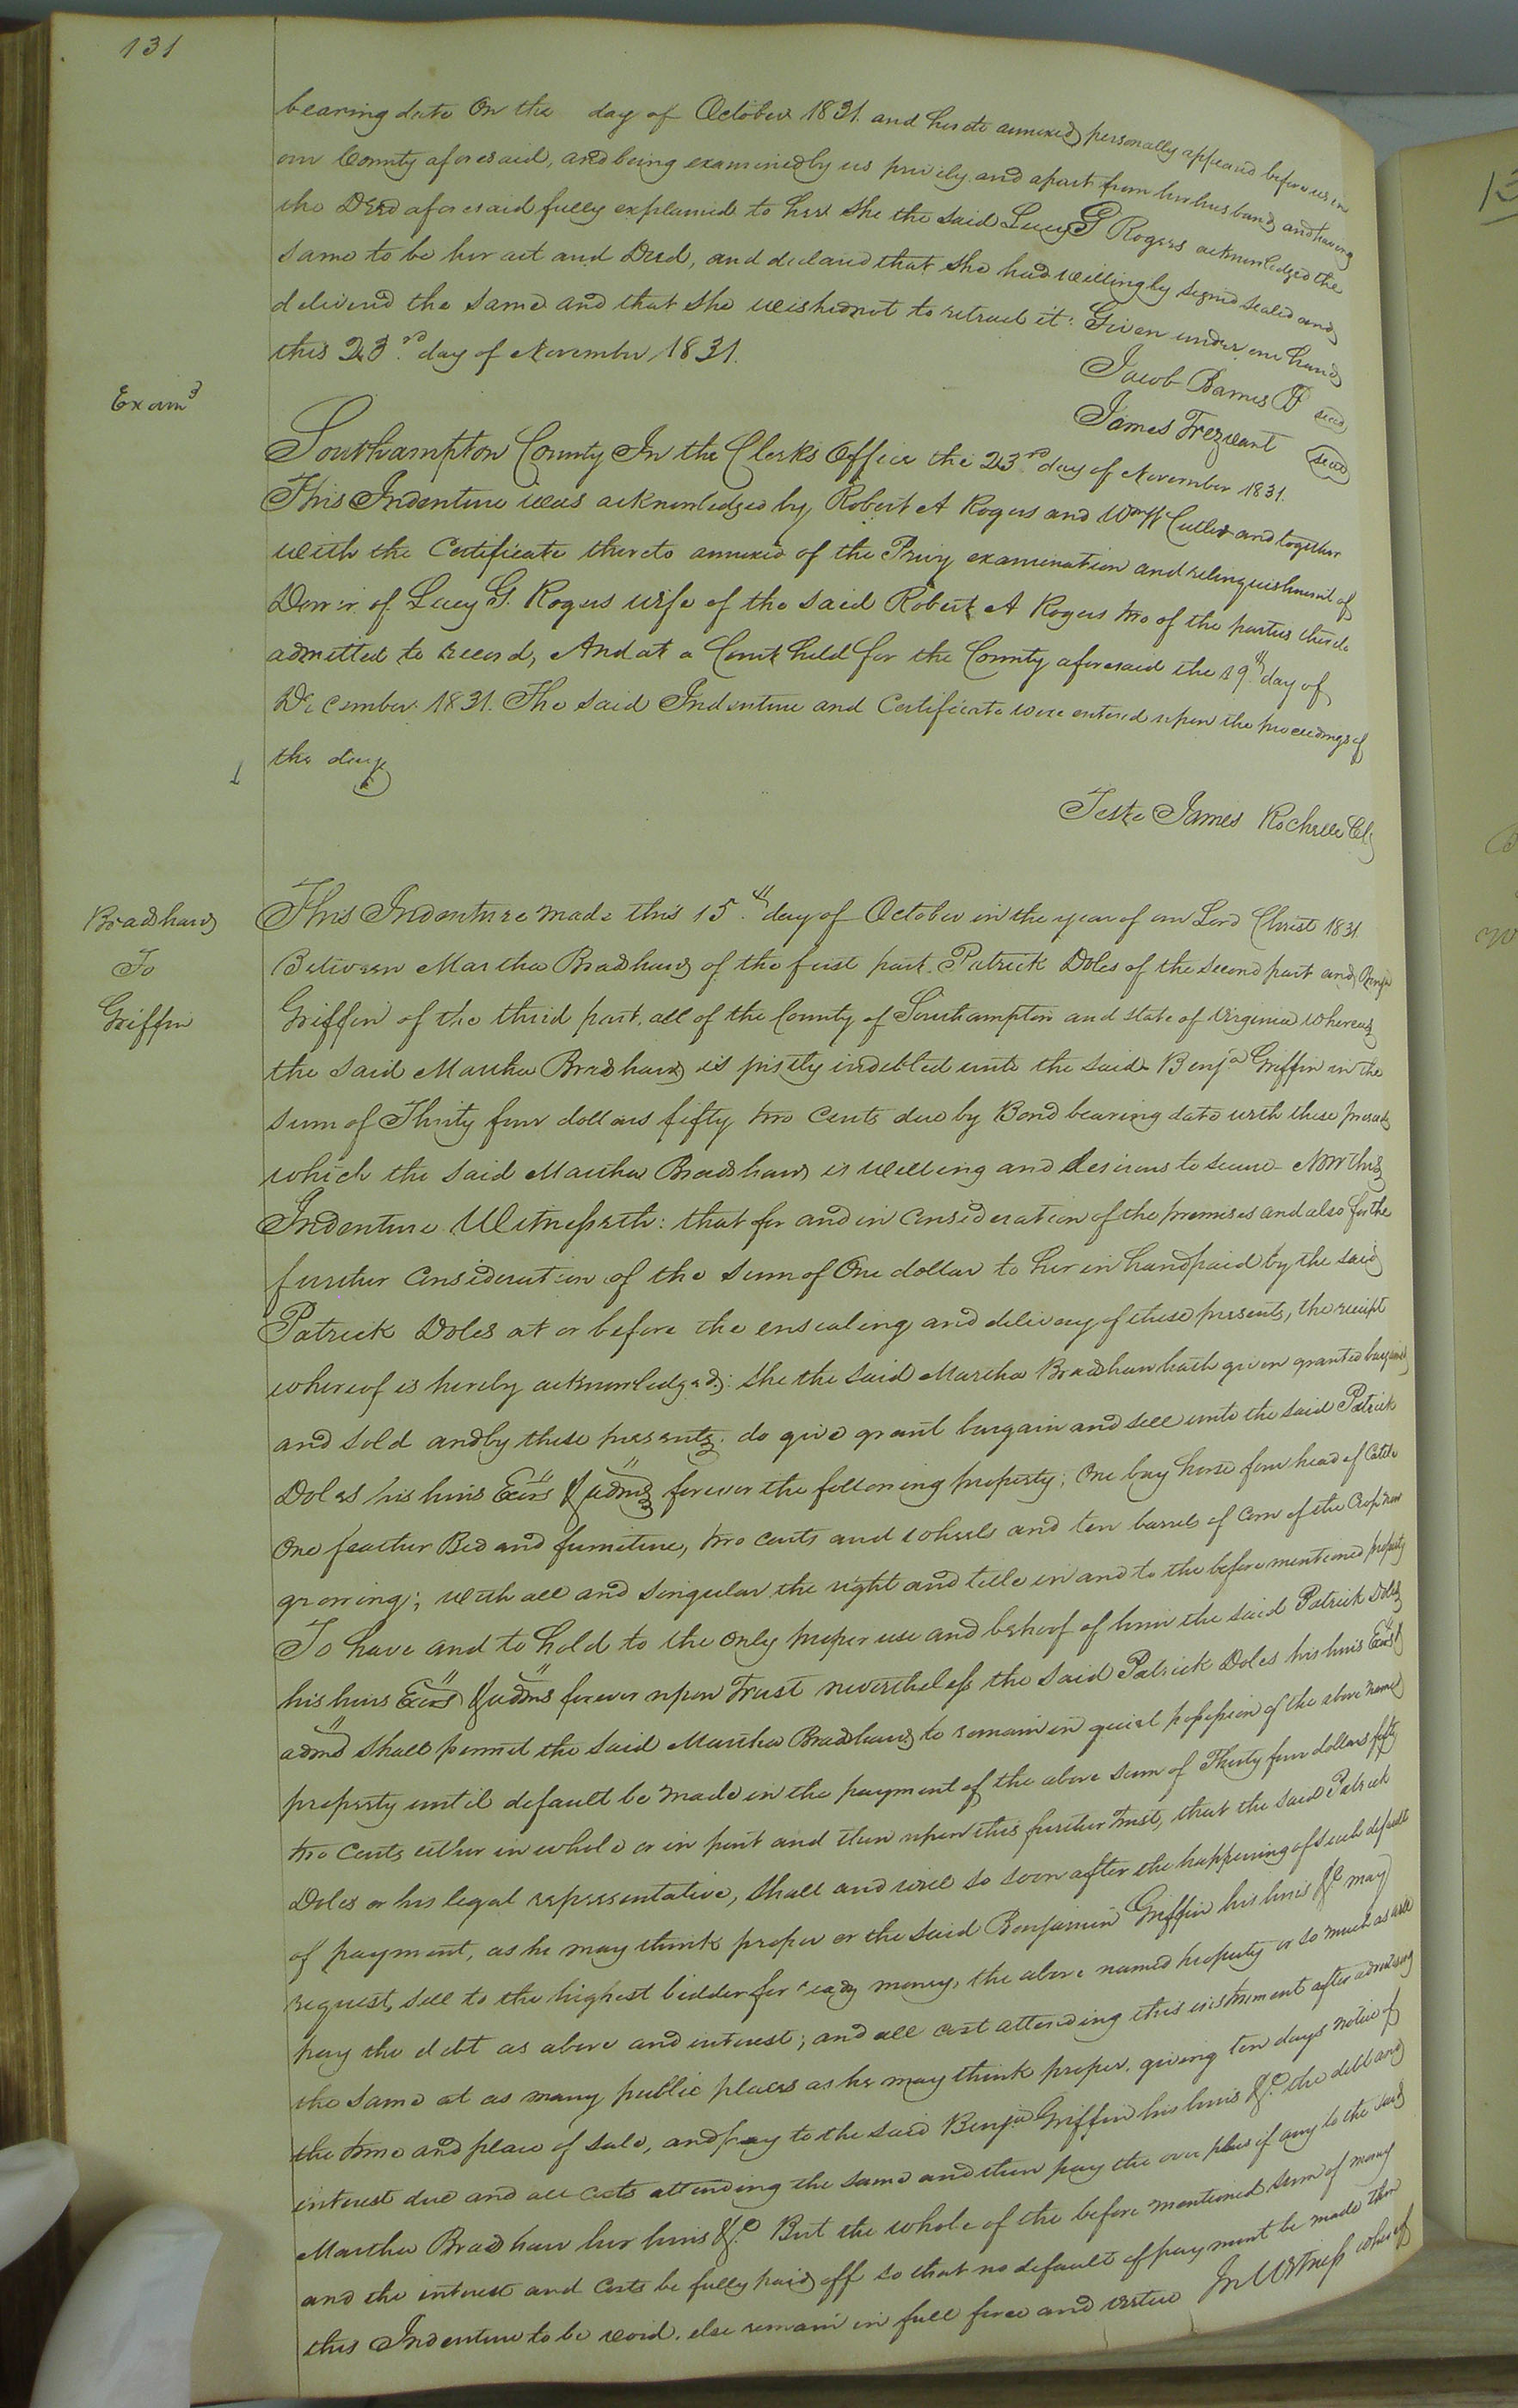 131
bearing date On the day of October 1831. and hereto annexed personally appeared before us in
our County aforesaid, and being examined by us privily and apart from her husband and having
the Deed aforesaid fully explained to her She the said Lucy G Rogers acknowledged the
same to be her act and Deed, and declared that she had willingly signed sealed and
delivered the same and that she wished not to retract it. Given under our hands
this 23rd day of November 1831.
Jacob Barnes seal
Exam'd
James Trezvant seal
Southampton County In the Clerks Office the 23rd day of November 1831.
This Indenture was acknowledged by Robert A Rogers and Wm W Cutler and together
with the Certificate thereto annexed of the Privy examination and relinquishment of
Dower of Lucy G. Rogers wife of the said Robert A Rogers two of the parties thereto
admitted to record, And at a Court held for the County aforesaid the 19th day of
December 1831. The said Indenture and Certificate were entered upon the proceedings of
the day
Teste James Rochelle Clk
Bradshaw
To
Griffin
This Indenture made this 15th day of October in the year of our Lord Christ 1831
Between Martha Bradshaw of the first part. Patrick Doles of the second part and Benja
Griffin of the third part, all of the County of Southampton and state of Virginia whereas
the said Martha Bradshaw is justly indebted unto the said Benja Griffin in the
sum of Thirty four dollars fifty two Cents due by Bond bearing date with these presents
which the said Martha Bradshaw is willing and desirous to secure - Now this
Indenture Witnesseth: that for and in Consideration of the premises and also for the
further Consideration of the sum of One dollar to her in hand paid by the said
Patrick Doles at or before the ensealing and delivery of these presents, the receipt
whereof is hereby acknowledged: She the said Martha Bradshaw hath given granted bargained
and sold and by these presents do give grant bargain and sell unto the said Patrick
Doles his heirs Exors & admrs forever the following property; One bay horse four head of Cattle
One feather Bed and furniture, two carts and wheels and ten barrels of Corn of the Crop now
growing; with all and singular the right and title in and to the before mentioned property
To have and to hold to the only proper use and behoof of him the said Patrick Doles
his heirs Exors & admrs forever upon Trust nevertheless the said Patrick Doles his heirs Exors &
admrs shall permit the said Martha Bradshaw to remain in quiet possession of the above named
property until default be made in the payment of the above sum of Thirty four dollars fifty
two Cents either in whole or in part and then upon this further trust, that the said Patrick
Doles or his legal representative, shall and will so soon after the happening of such default
of payment, as he may think proper or the said Benjamin Griffin his heirs &c may
request, sell to the highest bidder for ready money, the above named property or so much as will
pay the debt as above and interest; and all cost attending this instrument after advertising
the same at as many public places as he may think proper. giving ten days notice of
the time and place of sale, and pay to the said Benja Griffin his heirs &c. the debt and
interest due and all costs attending the same and then pay the over plus if any to the said
Martha Bradshaw her heirs &c. But the whole of the before mentioned sum of money
and the interest and costs be fully paid off so that no default of payment be made then
this Indenture to be void. else remain in full force and virtue In Witness whereof